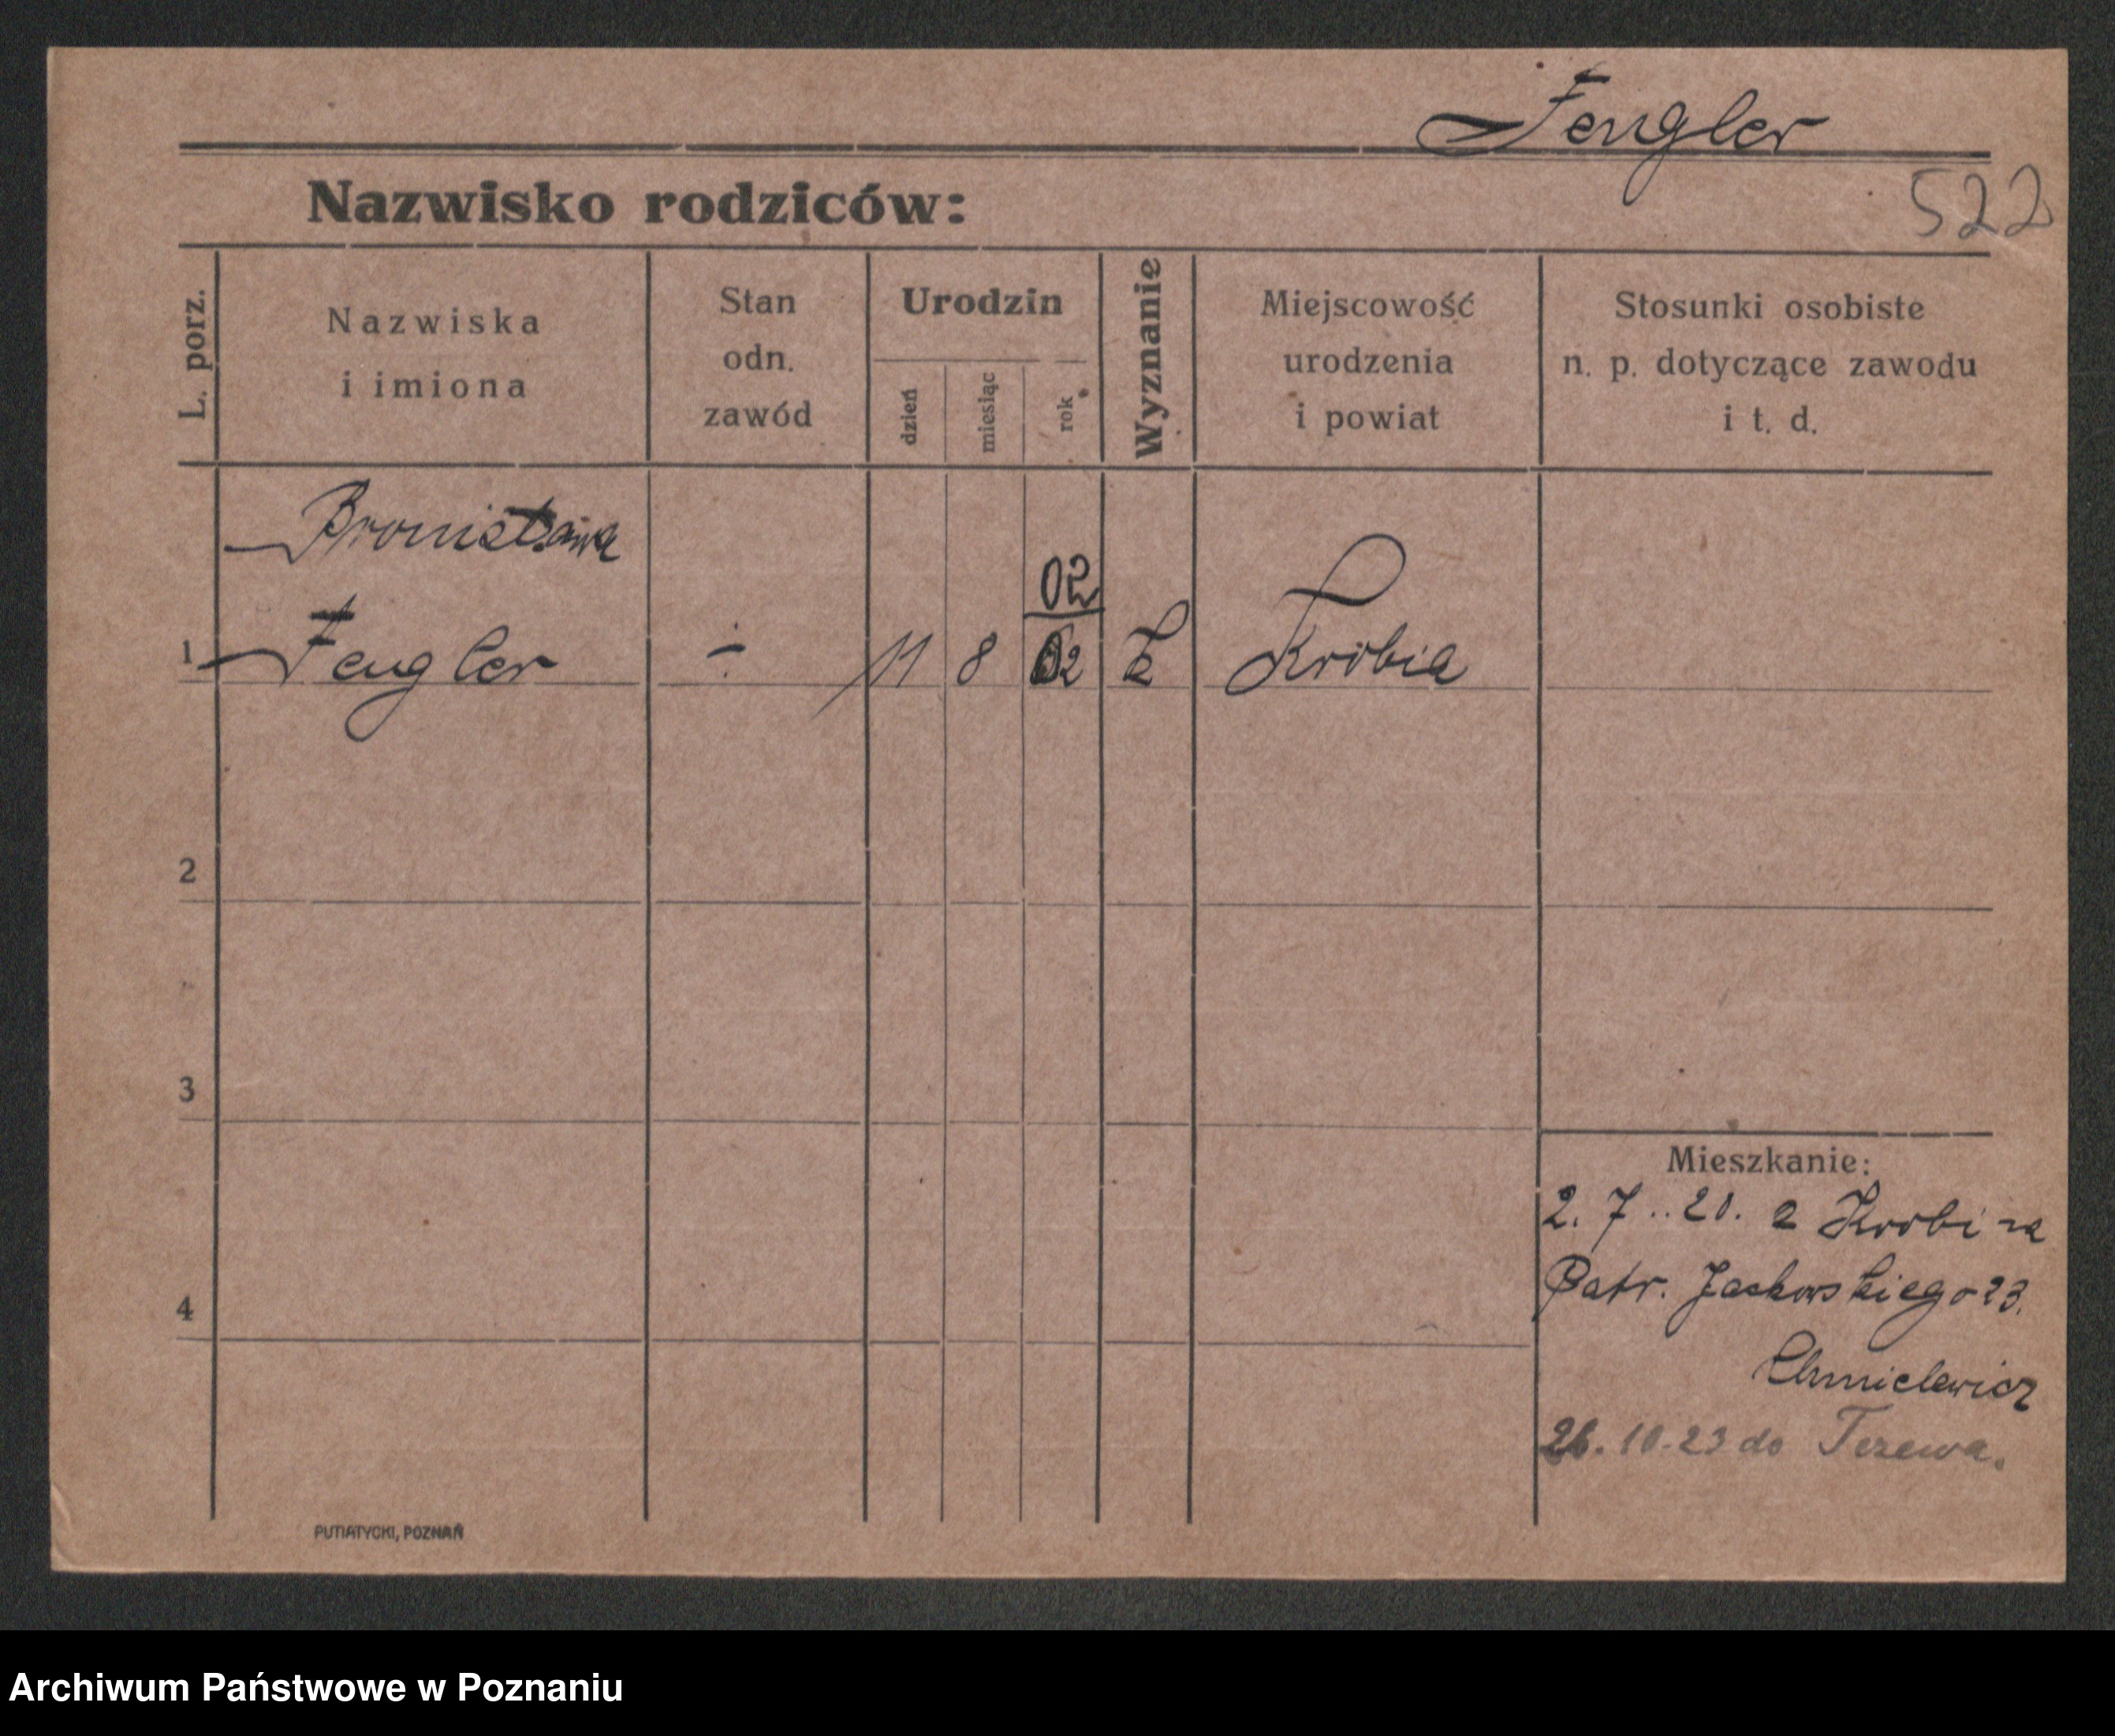 Fengler
Nazwisko rodziców:
522
L. porz.
Nazwiska
i imiona
Stan
odn.
zawód
Urodzin
dzień
miesiąc
rok
Wyznanie
Miejscowość
urodzenia
i powiat
Stosunki osobiste
n. p. dotyczące zawodu
i t. d.
Bronisława
02
1 Fengler ÷ 11 8 02 Krobia
2
3
4
Mieszkanie:
2. 7 .. 20. z Krobi na
Patr. Jackowskiego 23.
Chmielewicz
26. 10-23 do Tczewa.
PUTIATYCKI, POZNAŃ
Archiwum Państwowe w Poznaniu